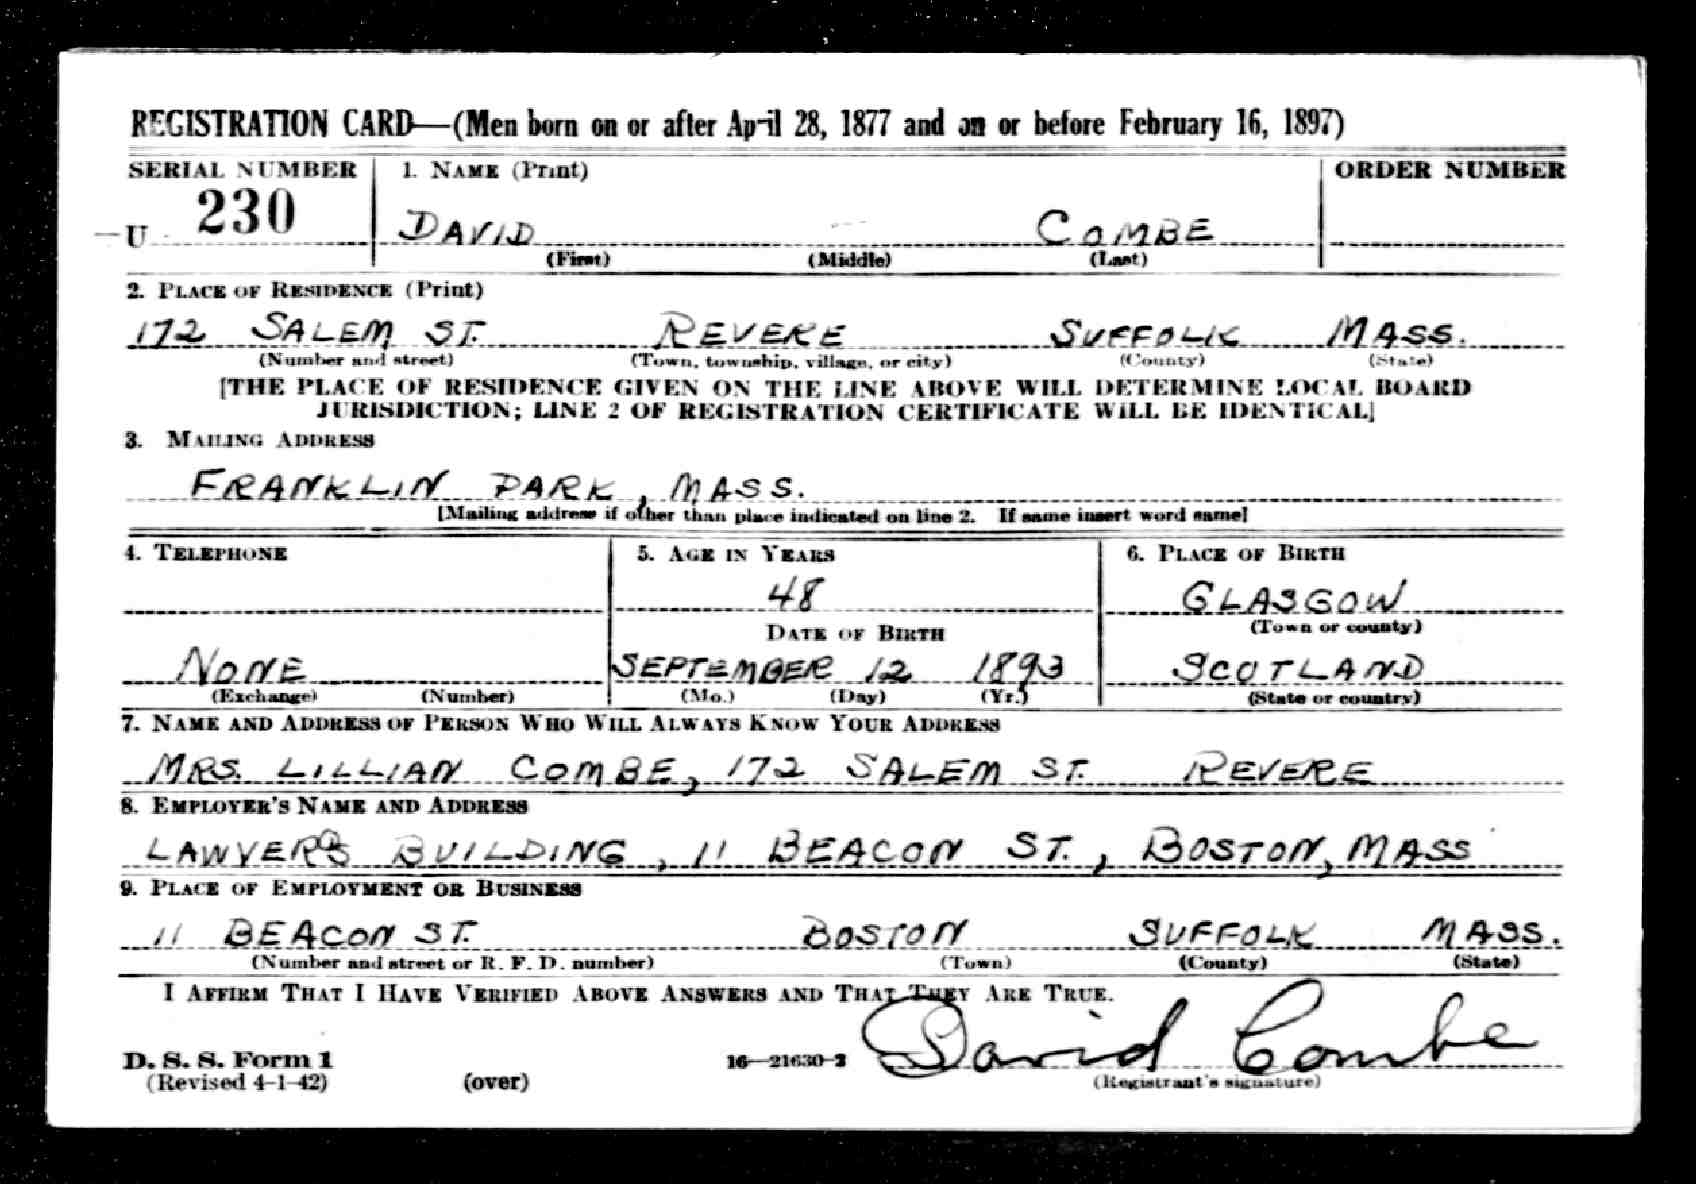 REGISTRATION CARD—(Men born on or after April 28, 1877 and on or before February 16, 1897)
SERIAL NUMBER 1. NAME (Print) ORDER NUMBER
U 230 DAVID — COMBE
(First) (Middle) (Last)
2. PLACE OF RESIDENCE (Print)
172 SALEM ST. REVERE SUFFOLK MASS.
(Number and street) (Town, township, village, or city) (County) (State)
[THE PLACE OF RESIDENCE GIVEN ON THE LINE ABOVE WILL DETERMINE LOCAL BOARD
JURISDICTION; LINE 2 OF REGISTRATION CERTIFICATE WILL BE IDENTICAL]
3. MAILING ADDRESS
FRANKLIN PARK, MASS.
[Mailing address if other than place indicated on line 2. If same insert word same]
4. TELEPHONE 5. AGE IN YEARS 6. PLACE OF BIRTH
48 GLASGOW
DATE OF BIRTH (Town or county)
NONE SEPTEMBER 12 1893 SCOTLAND
(Exchange) (Number) (Mo.) (Day) (Yr.) (State or country)
7. NAME AND ADDRESS OF PERSON WHO WILL ALWAYS KNOW YOUR ADDRESS
MRS. LILLIAN COMBE, 172 SALEM ST. REVERE
8. EMPLOYER'S NAME AND ADDRESS
LAWYERS BUILDING, 11 BEACON ST., BOSTON, MASS
9. PLACE OF EMPLOYMENT OR BUSINESS
11 BEACON ST. BOSTON SUFFOLK MASS.
(Number and street or R. F. D. number) (Town) (County) (State)
I AFFIRM THAT I HAVE VERIFIED ABOVE ANSWERS AND THAT THEY ARE TRUE.
D. S. S. Form 1 16—21630-2 David Combe
(Revised 4-1-42) (over) (Registrant's signature)